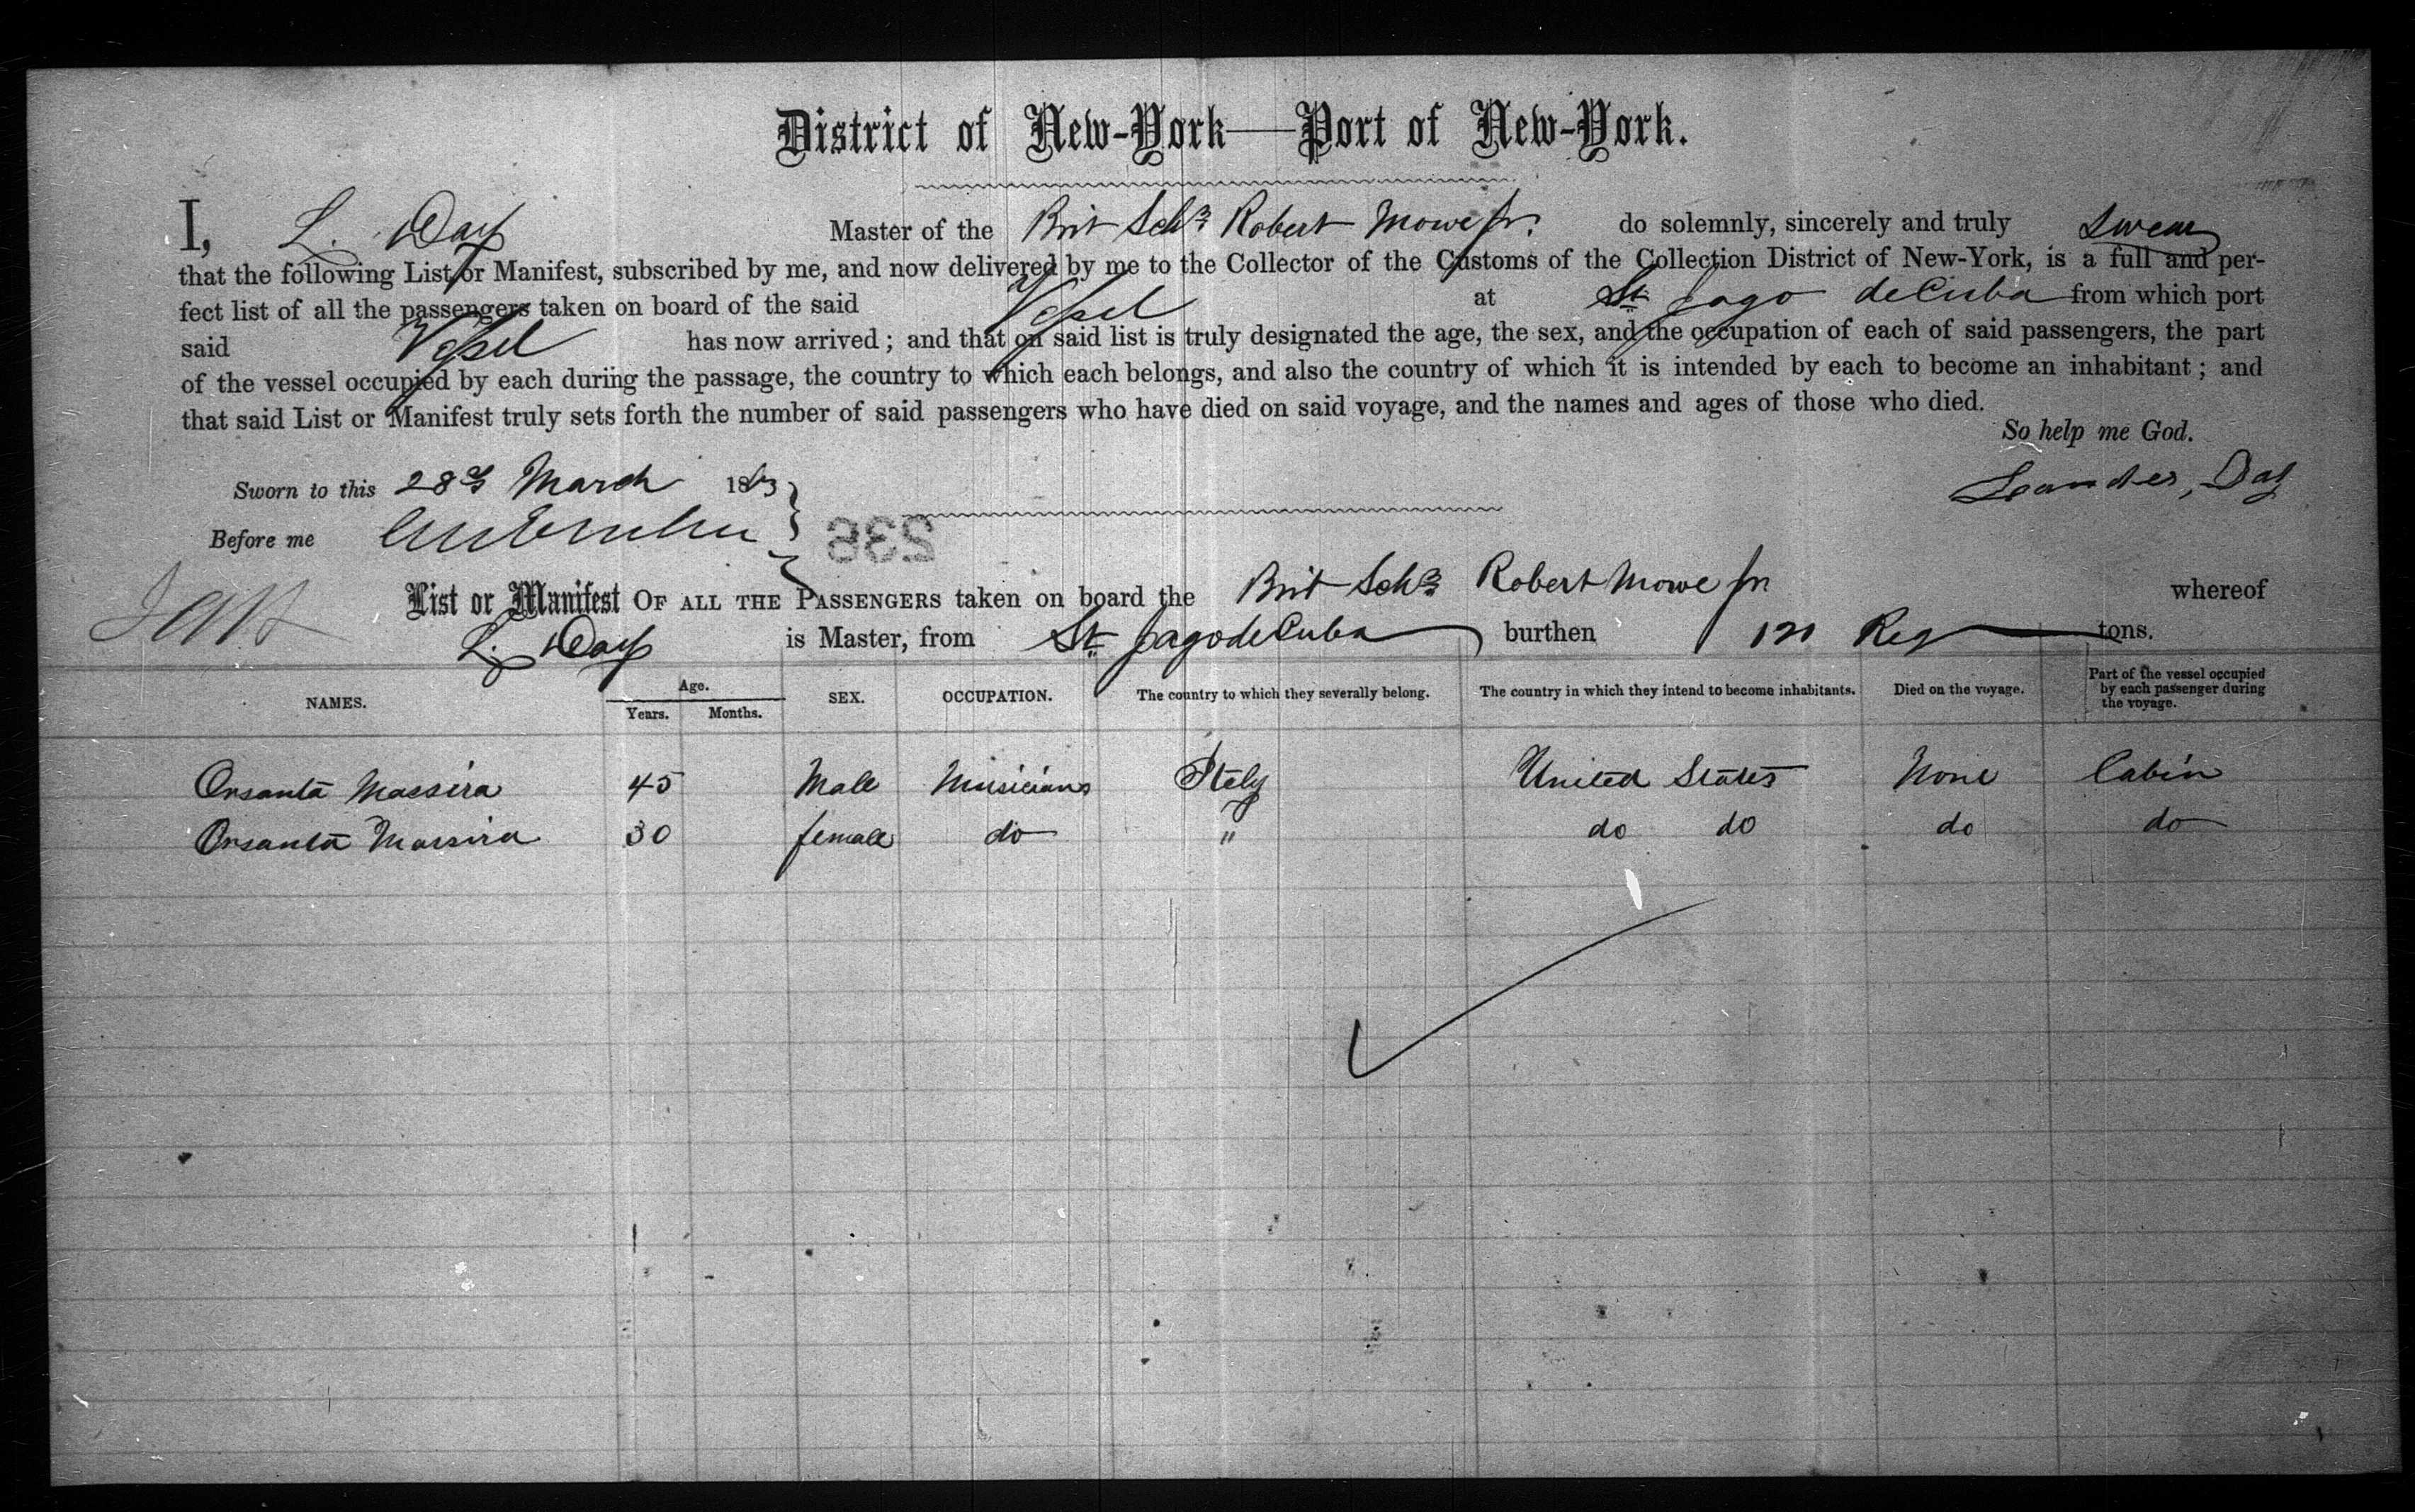 District of New-York—Port of New-York.
I, L. Day Master of the Brit Schr Robert Mowe Jr. do solemnly, sincerely and truly swear
that the following List or Manifest, subscribed by me, and now delivered by me to the Collector of the Customs of the Collection District of New-York, is a full and per-
fect list of all the passengers taken on board of the said Vessel at St Jago de Cuba from which port
said Vessel has now arrived; and that on said list is truly designated the age, the sex, and the occupation of each of said passengers, the part
of the vessel occupied by each during the passage, the country to which each belongs, and also the country of which it is intended by each to become an inhabitant; and
that said List or Manifest truly sets forth the number of said passengers who have died on said voyage, and the names and ages of those who died.
So help me God.
Sworn to this 28th March 1863
Leander, Day
Before me
238
List or Manifest OF ALL THE PASSENGERS taken on board the Brit Schr Robert Mowe Jr whereof
L. Day is Master, from St Jago de Cuba burthen 121 Reg tons.
NAMES. Age. Years. Months. SEX. OCCUPATION. The country to which they severally belong. The country in which they intend to become inhabitants. Died on the voyage. Part of the vessel occupied by each passenger during the voyage.
Orsanta Massira 45 Male Musicians Itely United States None Cabin
Orsanta Massira 30 female do " do do do do